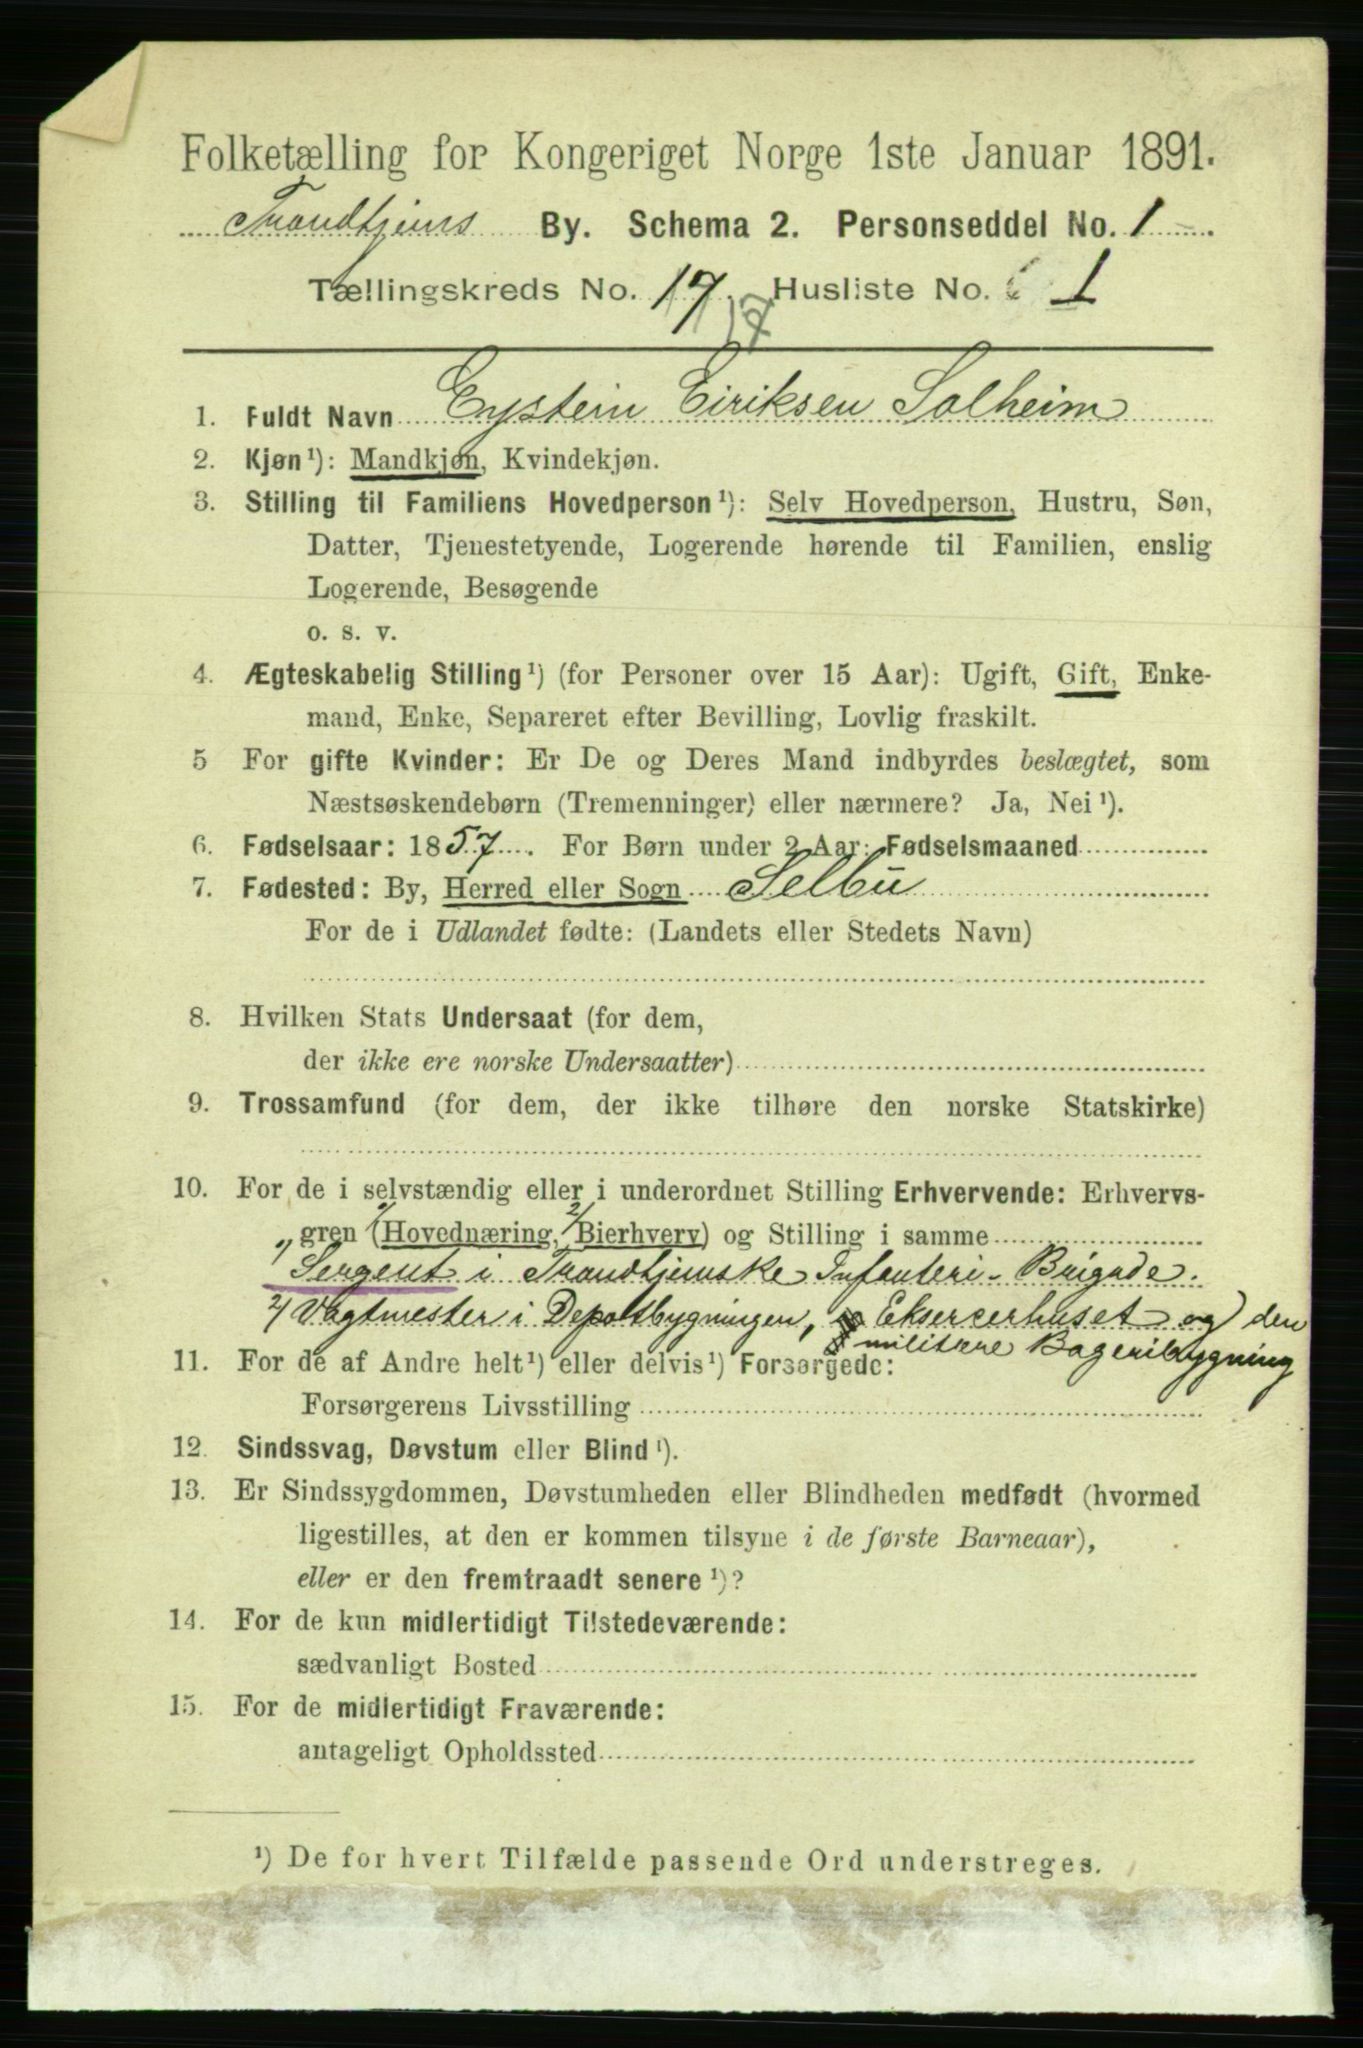 Folketælling for Kongeriget Norge 1ste Januar 1891.
Trondhjems By. Schema 2. Personseddel No. 1
Tællingskreds No. 17 Husliste No. 1
17
1. Fuldt Navn Eystein Eiriksen Solheim
2. Kjøn¹): Mandkjøn, Kvindekjøn.
3. Stilling til Familiens Hovedperson¹): Selv Hovedperson, Hustru, Søn,
Datter, Tjenestetyende, Logerende hørende til Familien, enslig
Logerende, Besøgende
o. s. v.
4. Ægteskabelig Stilling¹) (for Personer over 15 Aar): Ugift, Gift, Enke-
mand, Enke, Separeret efter Bevilling, Lovlig fraskilt.
5 For gifte Kvinder: Er De og Deres Mand indbyrdes beslægtet, som
Næstsøskendebørn (Tremenninger) eller nærmere? Ja, Nei¹).
6. Fødselsaar: 1857. For Børn under 2 Aar: Fødselsmaaned
7. Fødested: By, Herred eller Sogn Selbu
For de i Udlandet fødte: (Landets eller Stedets Navn)
8. Hvilken Stats Undersaat (for dem,
der ikke ere norske Undersaatter)
9. Trossamfund (for dem, der ikke tilhøre den norske Statskirke)
10. For de i selvstændig eller i underordnet Stilling Erhvervende: Erhvervs-
gren 1/ (Hovednæring, 2/ Bierhverv) og Stilling i samme
1/ Sergent i Trondtjemske Infanteri-Brigade.
2/ Vagtmester i Depotbygningen, Ekserserhuset og den
militære Bageribygning
11. For de af Andre helt¹) eller delvis¹) Forsørgede:
Forsørgerens Livsstilling
12. Sindssvag, Døvstum eller Blind¹).
13. Er Sindssygdommen, Døvstumheden eller Blindheden medfødt (hvormed
ligestilles, at den er kommen tilsyne i de første Barneaar),
eller er den fremtraadt senere¹)?
14. For de kun midlertidigt Tilstedeværende:
sædvanligt Bosted
15. For de midlertidigt Fraværende:
antageligt Opholdssted
¹) De for hvert Tilfælde passende Ord understreges.